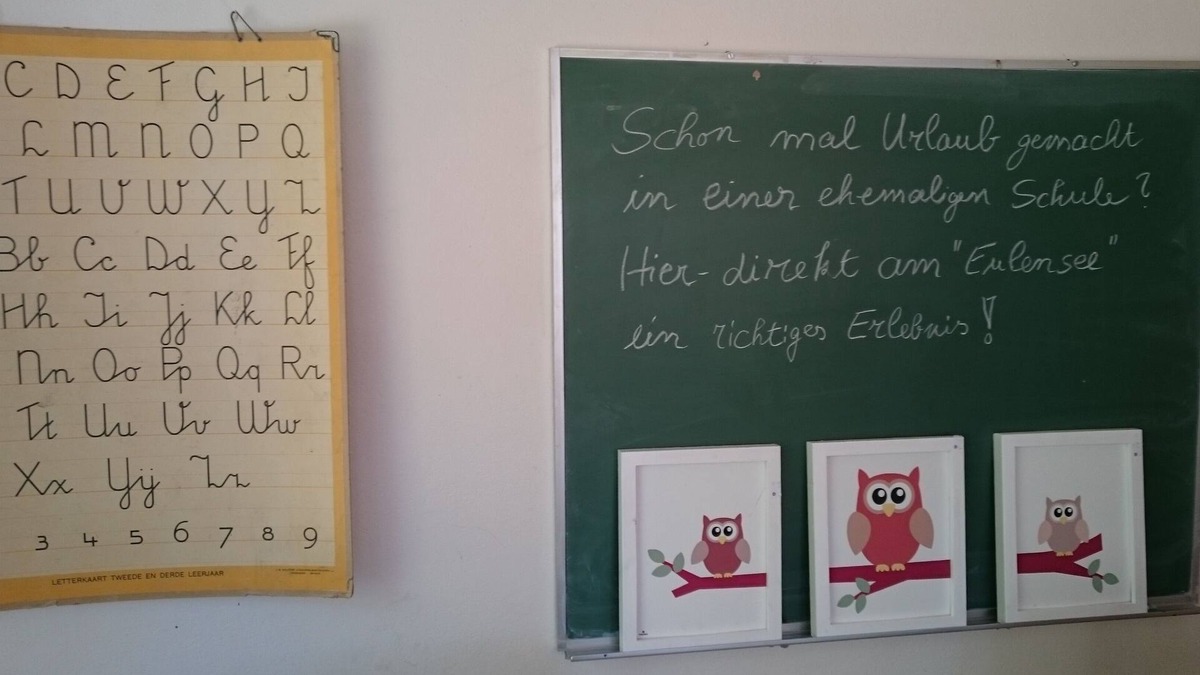 C D E F G H I
L M N O P Q
T U V W X Y Z
Bb Cc Dd Ee Ff
Hh Ii Jj Kk Ll
Nn Oo Pp Qq Rr
Tt Uu Vv Ww
Xx Yy Zz
3 4 5 6 7 8 9
LETTERKAART TWEEDE EN DERDE LEERJAAR
Schon mal Urlaub gemacht
in einer ehemaligen Schule?
Hier - direkt am "Eulensee"
ein richtiges Erlebnis!